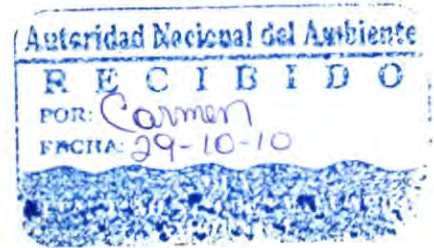 Autoridad Nacional del Ambiente
RECIBIDO
POR: Carmen
FECHA: 29-10-10